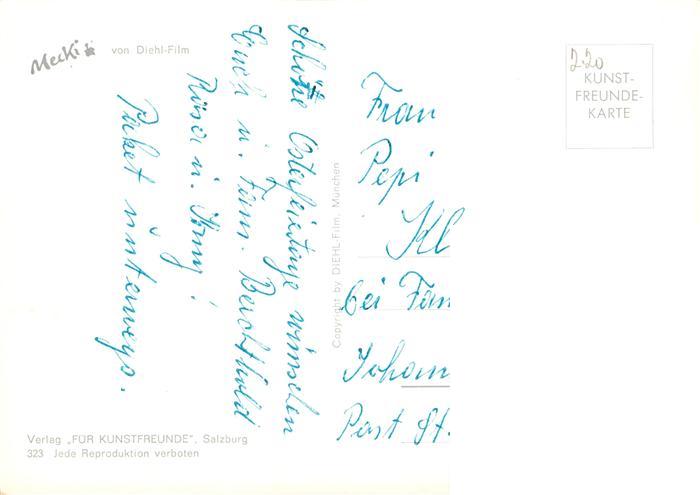 Mecki
von Diehl-Film
Schöne Osterfeiertage wünschen
Euch u. Fam. Berchthold
Rosa u. Anny!
Paket unterwegs.
Copyright by DIEHL-Film, München
Frau
Pepi
Kl
bei Fam
Johann
Post St.
2.20
KUNST-
FREUNDE-
KARTE
Verlag „FÜR KUNSTFREUNDE“, Salzburg
323 Jede Reproduktion verboten